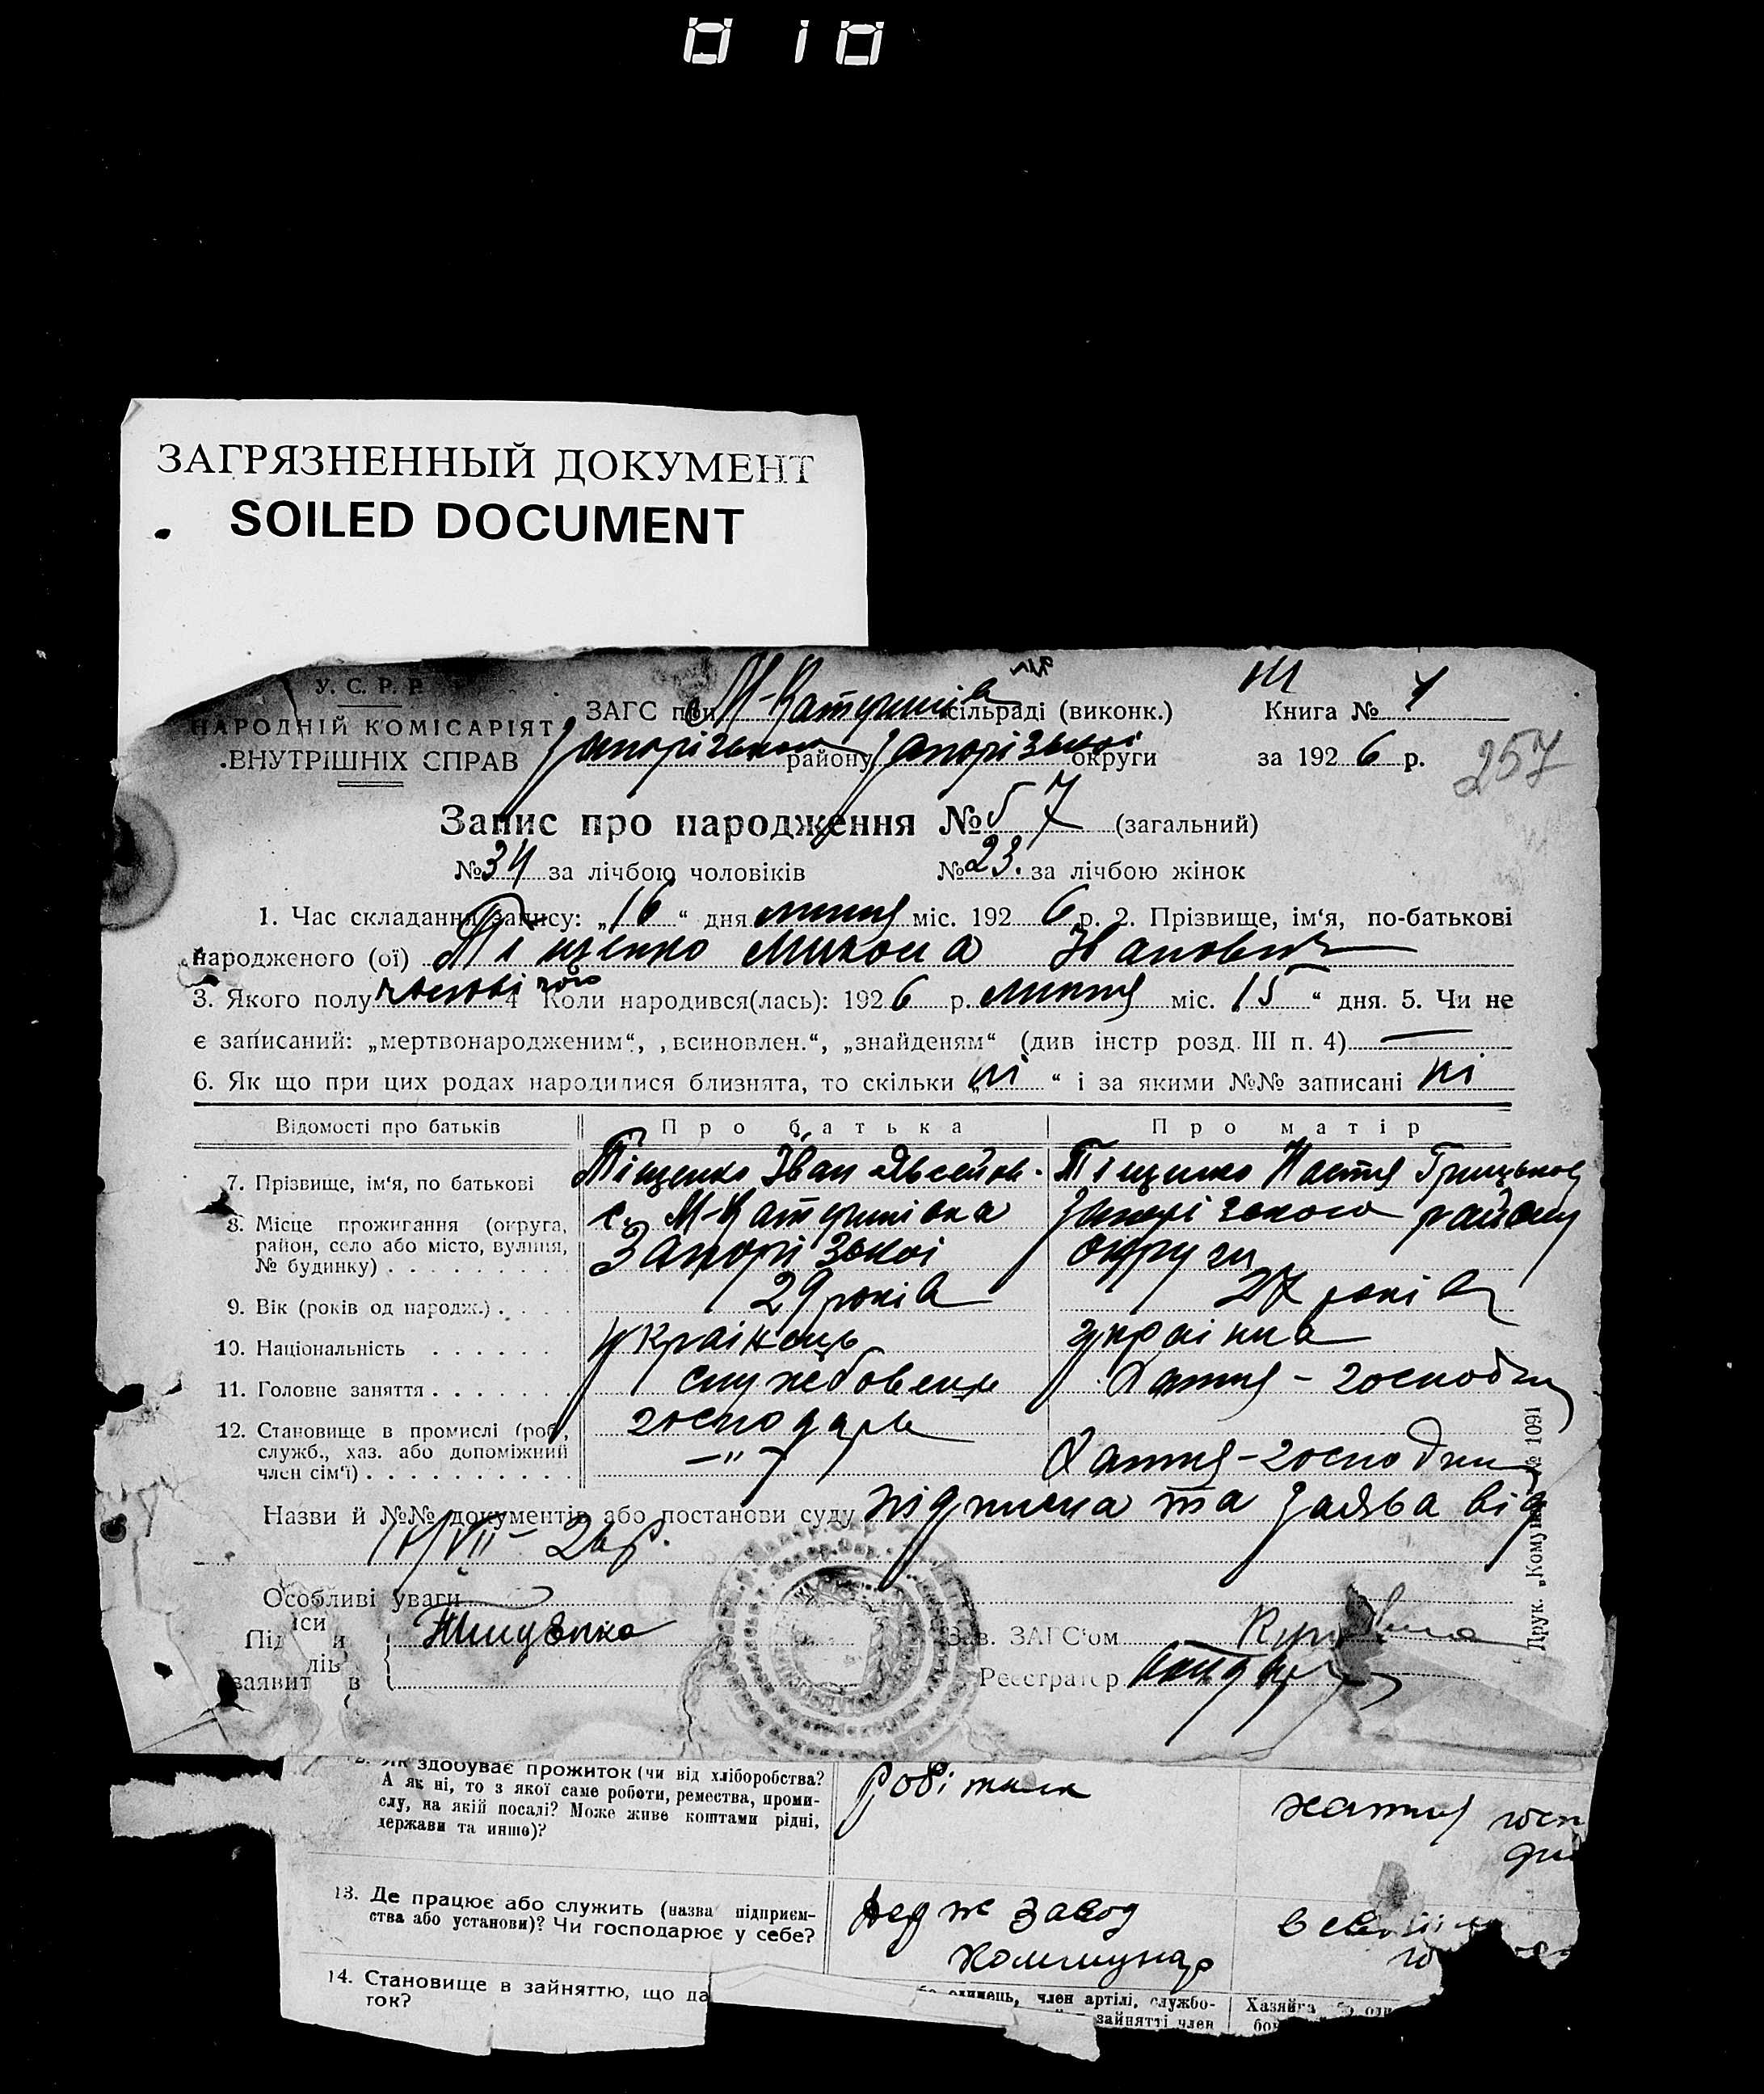 010
ЗАГРЯЗНЕННЫЙ ДОКУМЕНТ
SOILED DOCUMENT
У. С. Р. Р.
НАРОДНІЙ КОМІСАРІЯТ
ВНУТРІШНІХ СПРАВ
ЗАГС при М-Катеринів сільраді (виконк.)
Запорізького району Запорізької округи
Книга №
за 1926 р.
257
Запис про народження № 57 (загальний)
№ 34 за лічбою чоловіків № 23. за лічбою жінок
1. Час складання запису: „16“ дня липня міс. 1926 р. 2. Прізвище, ім'я, по-батькові
народженого (ої) Тіщенко Микола Іванович
3. Якого полу чоловічого 4 Коли народився(лась): 1926 р. липня міс. 15“ дня. 5. Чи не
є записаний: „мертвонародженим“, „всиновлен.“, „знайденям“ (див інстр розд. III п. 4) —
6. Як що при цих родах народилися близнята, то скільки „ні“ і за якими №№ записані ні
Відомості про батьків Про батька Про матір
7. Прізвище, ім'я, по батькові Тіщенко Іван Явсейов. Тіщенко Настя Грицьков
8. Місце прожигання (округа, район, село або місто, вулиця, № будинку) с. М-Катеринівка Запорізького району
Запорізької округи
9. Вік (років од народж.) 29 років 27 років
10. Національність українець українка
11. Головне заняття службовець Хатня - господин
12. Становище в промислі (роб., служб., хаз. або допоміжний член сім'ї) господарь
—"— Хатня-господин
Назви й №№ документів або постанови суду підписка та заява від
/VII - 26 р.
Особливі уваги
Тищенко
Зав. ЗАГС'ом
Реєстратор
Друк. „Комун № 1091
Як здобуває прожиток (чи від хліборобства?
А як ні, то з якої саме роботи, ремества, проми-
слу, на якій посаді? Може живе коштами рідні,
держави та инше)?
робітник
хатня госп
13. Де працює або служить (назва підприєм-
ства або установи)? Чи господарює у себе?
завод
Коммунар
14. Становище в зайняттю, що да
ток?
одинець, член артілі, службо-
зайнятті член
Хазяйка